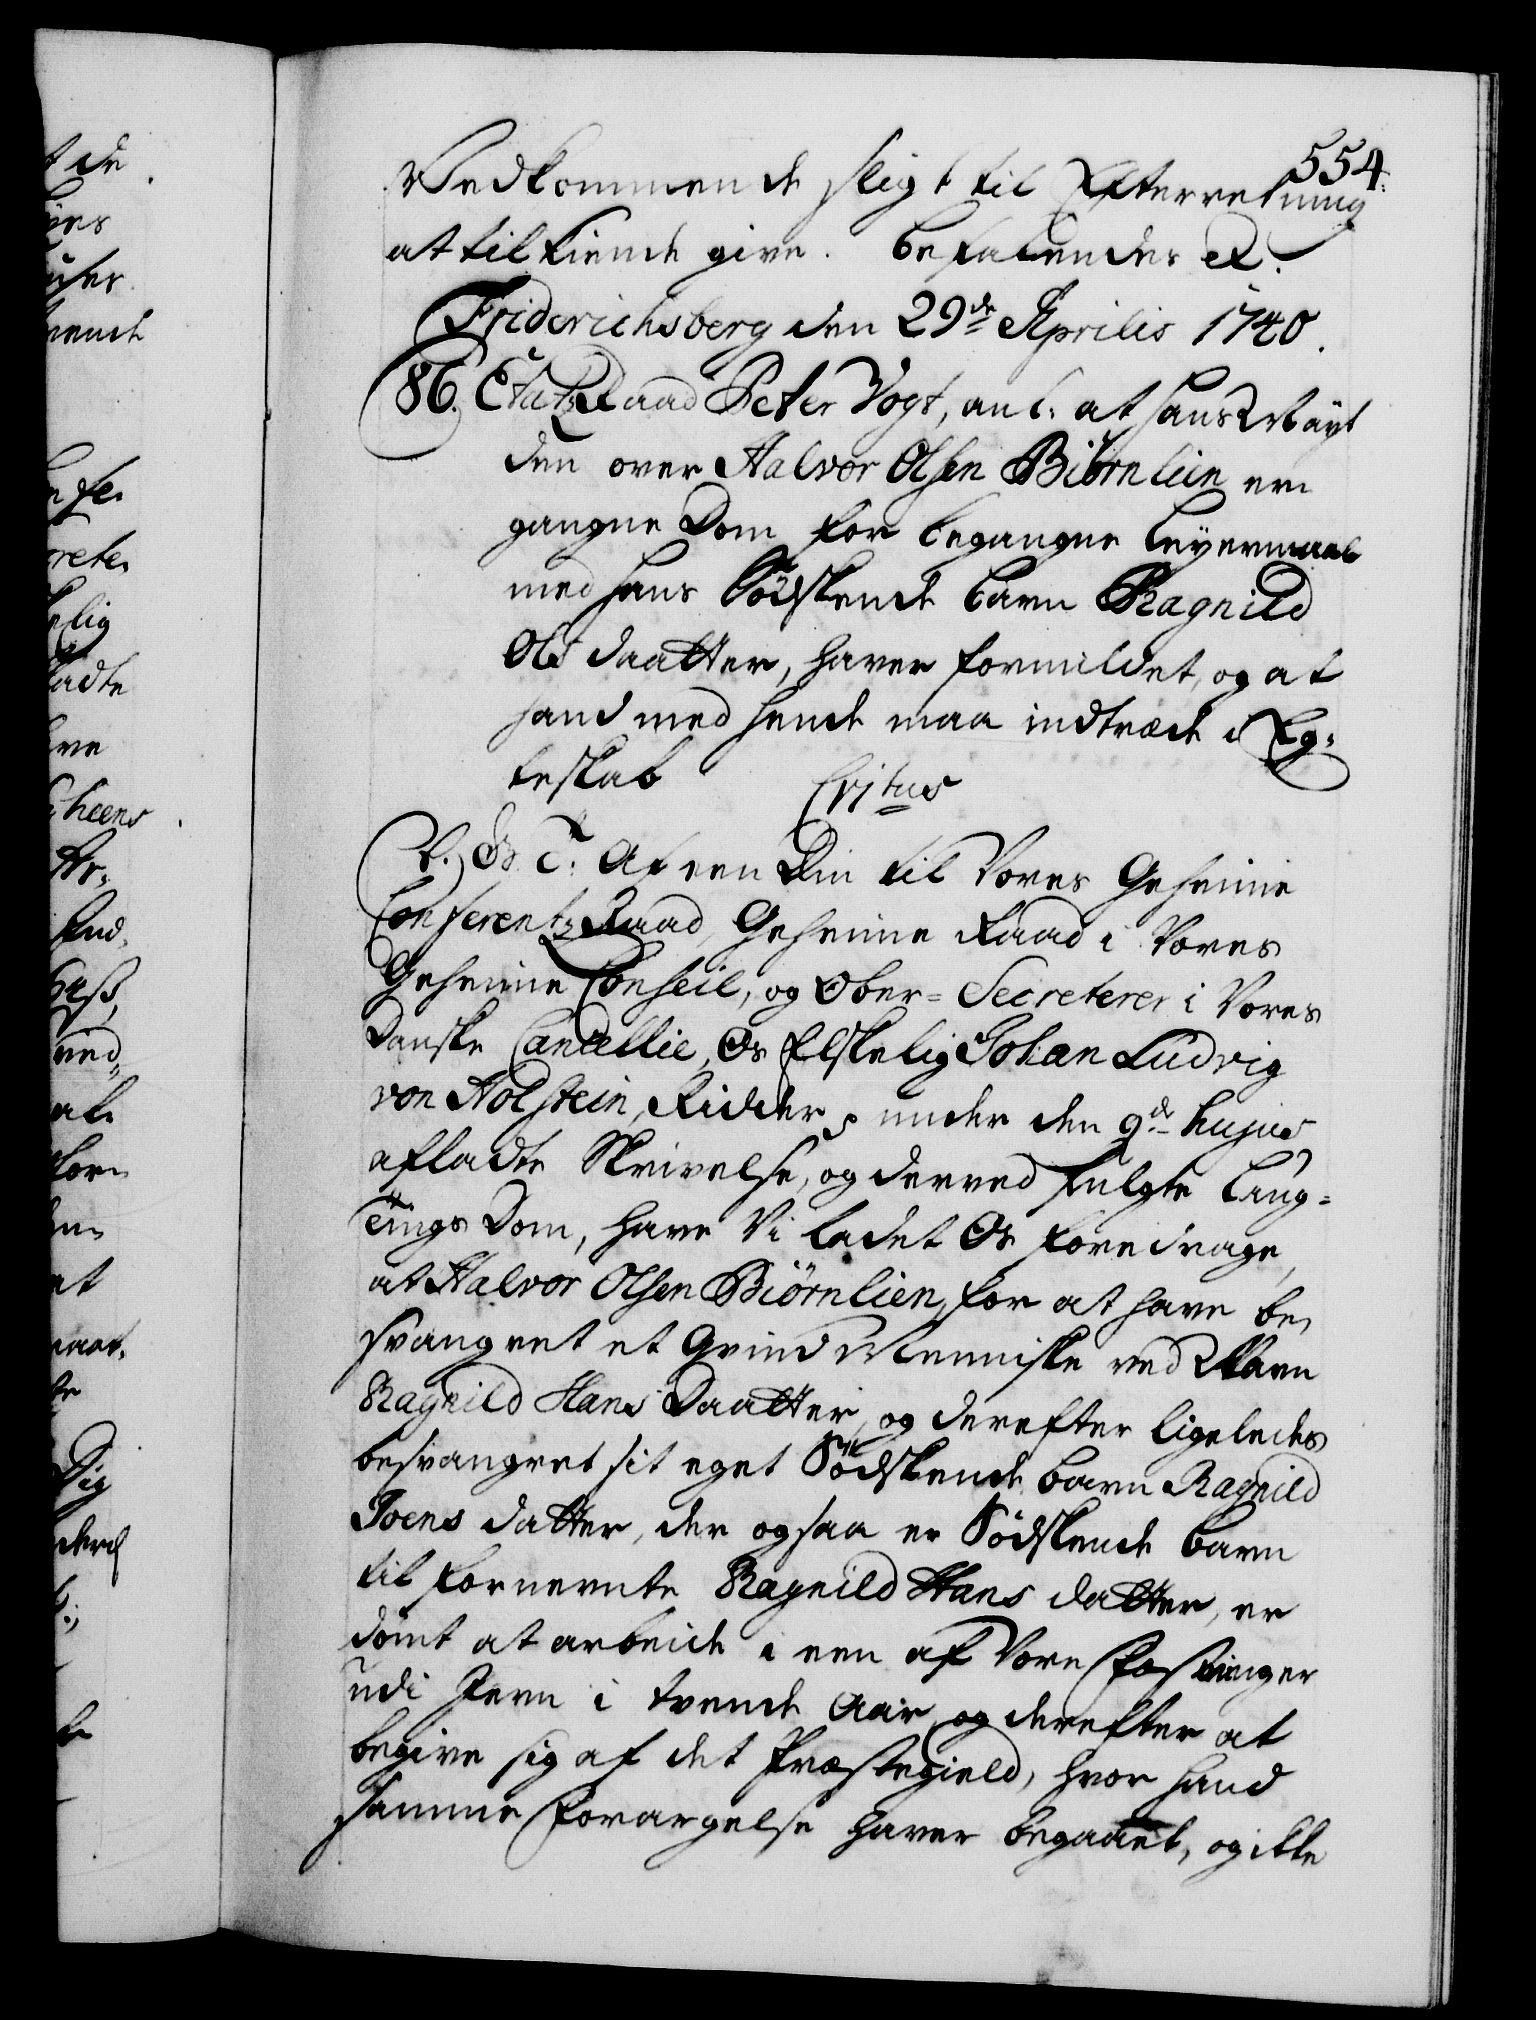 554.
Vedkommende sligt til Efterretning
at tilkiende give. Befalendes etc.
Friderichsberg den 29de Aprilis 1740.
86. EtatzRaad Peter Vogt, anl: at Hans Mayt
den over Halvor Olsen Biörnlien er¬
gangne Dom for begangne Leyermaal
med hans Södskende barn Ragnild
Ols daatter, haver formildet, og at
hand med hende maa indtræde i Eg¬
teskab
C. 6. T. Af een Din til Vores Geheime
Conferentz Raad, Geheime Raad i Vores
Geheime Conseil, og Ober=Secreterer i Vores
Danske Cancellie, Os Elskelig Johan Ludvig
von Holstein, Ridder, under den 9de hujus
afladte Skrivelse, og derved fulgte Laug¬
tings Dom, have Vi ladet Os foredrage,
at Halvor Olsen Biörnlien, for at have be¬
svangret et Qvind Menniske ved Navn
Ragnild Hans Daatter, og derefter ligeledes
besvangret sit eget Södskende barn Ragnild
Joens datter, der ogsaa er Södskende barn
til fornevnte Ragnild Hans datter, er
dömt at arbeide i een af Vore Fæstninger
udi Jern i tvende Aar, og derefter at
begive sig af det Præstegield, hvor hand
samme Forargelse haver begaaet, og ikke